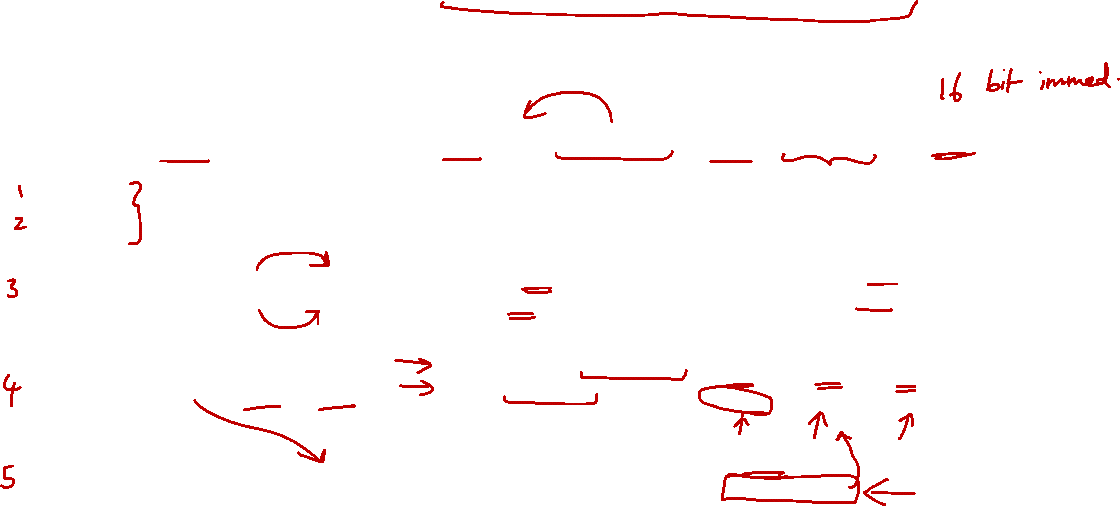 16 bit immed.
1
2
3
4
5